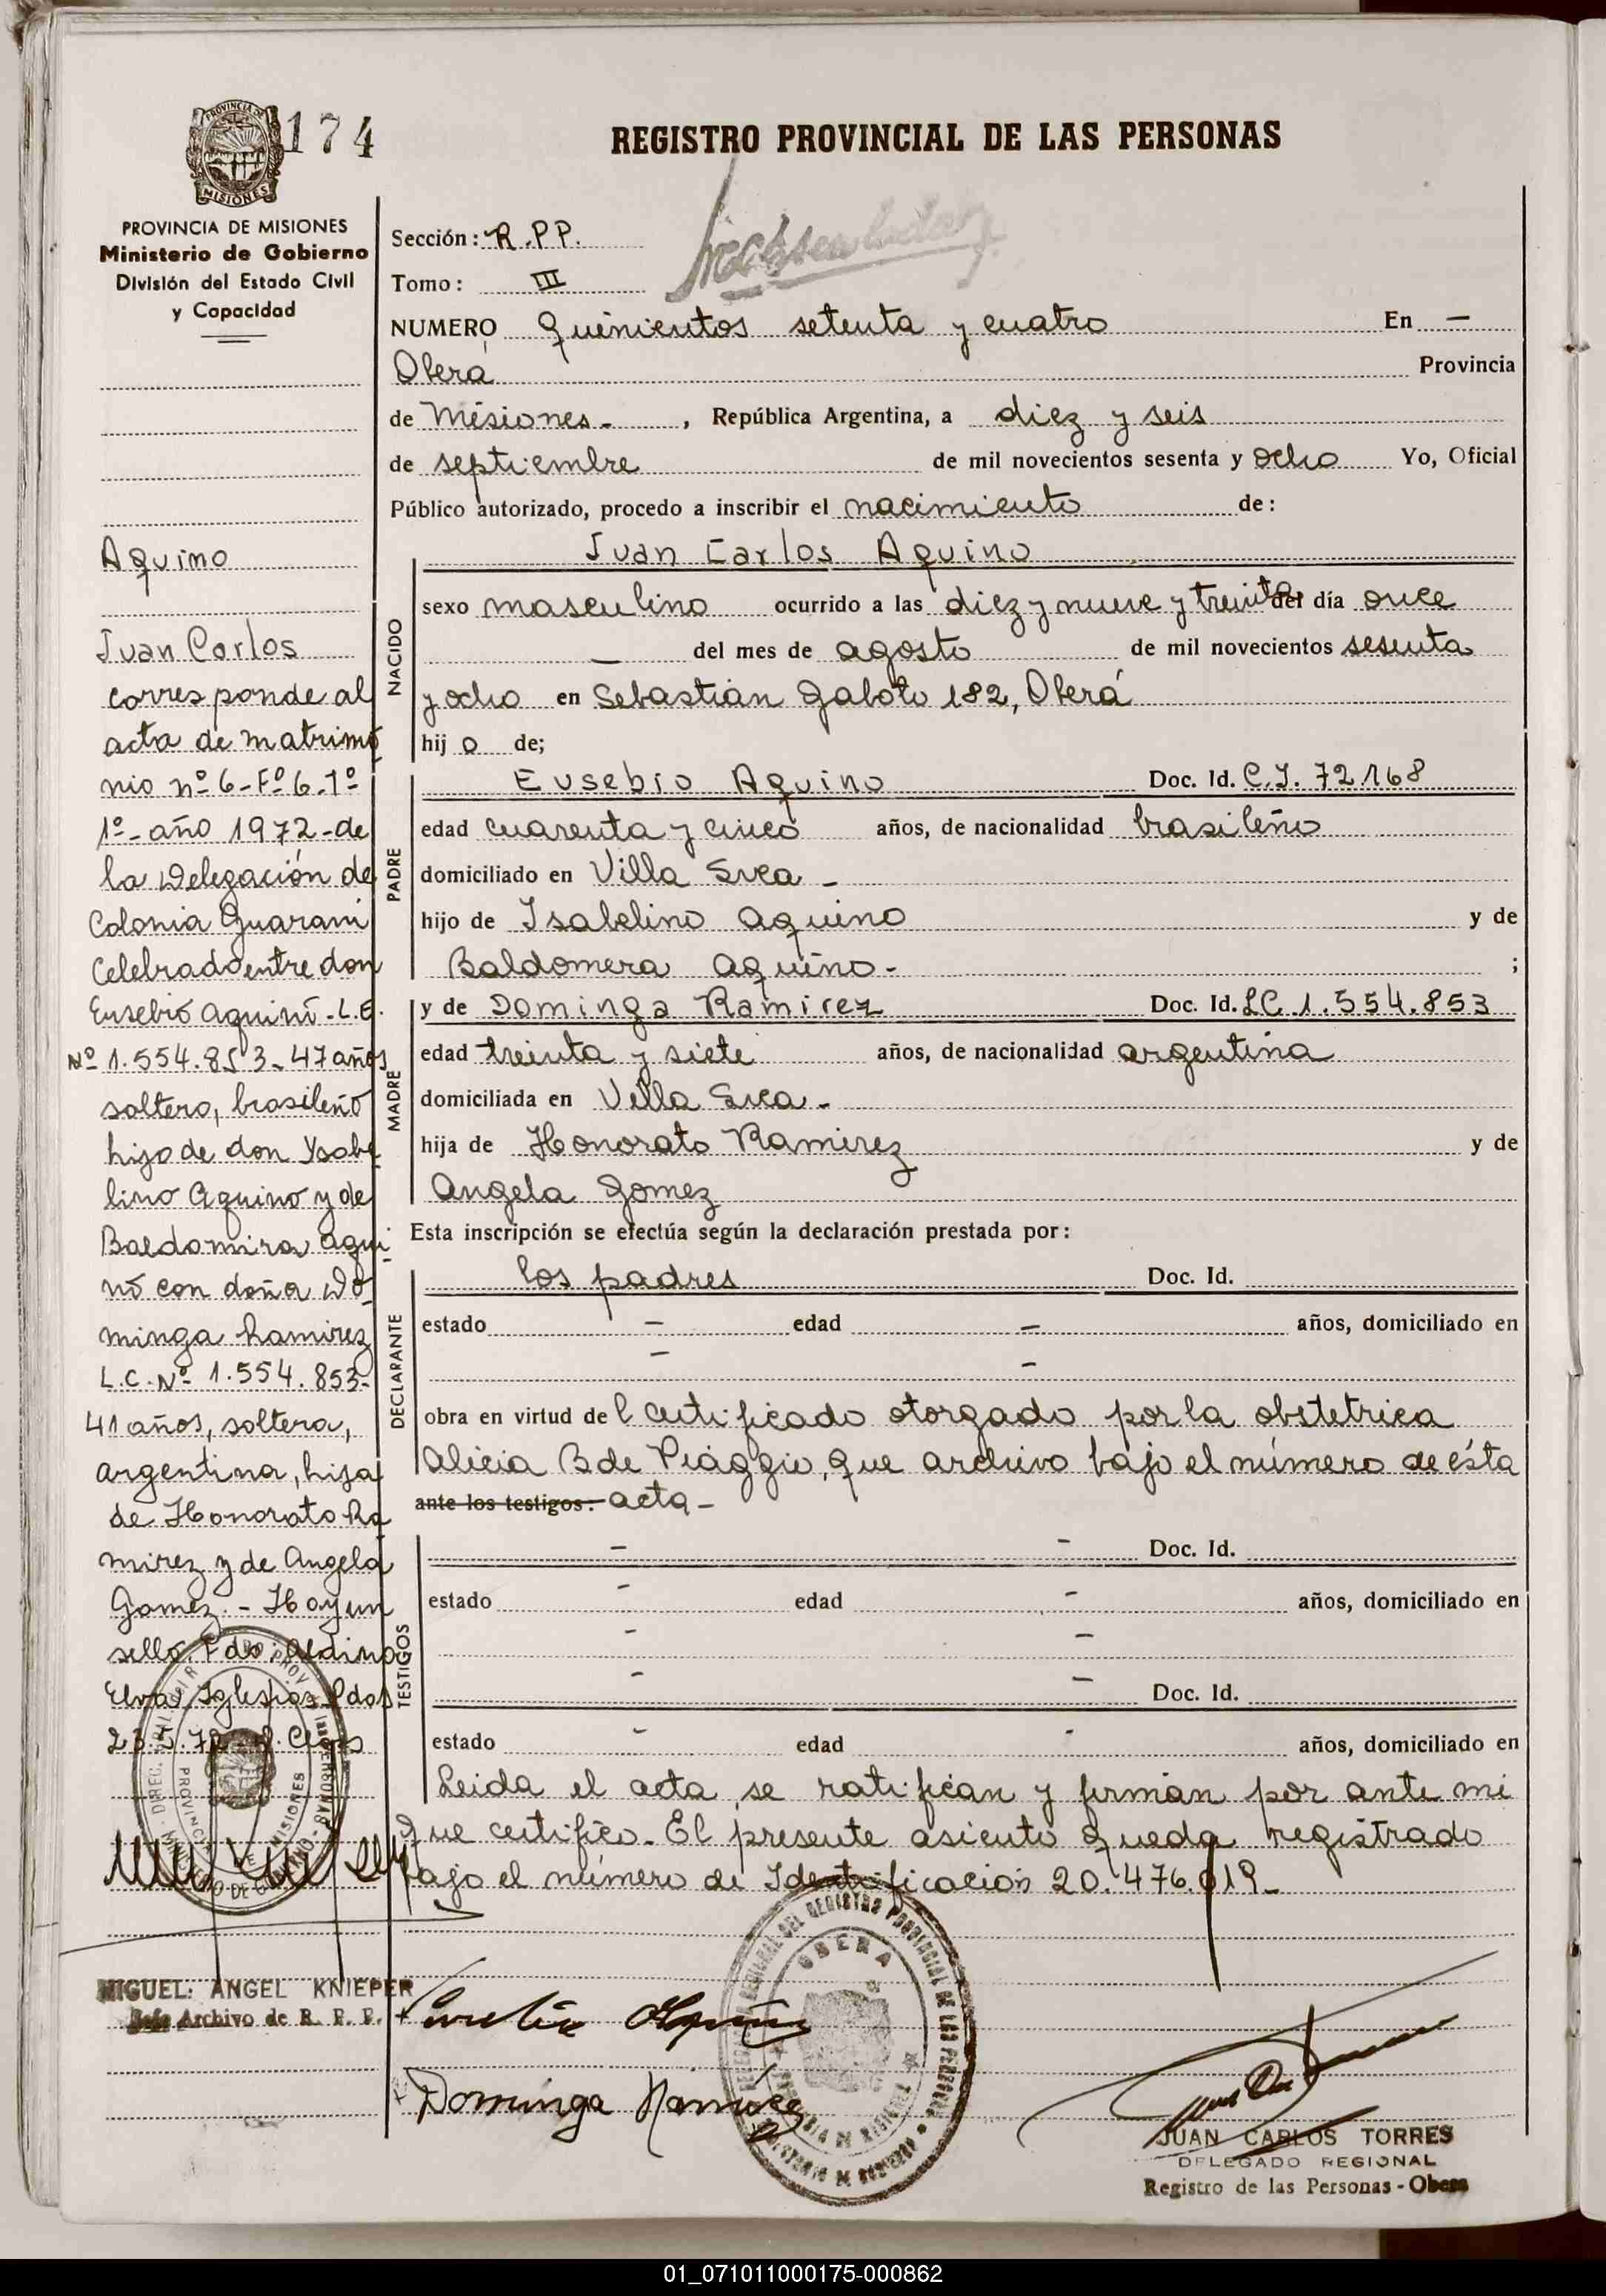 174
REGISTRO PROVINCIAL DE LAS PERSONAS
PROVINCIA DE
MISIONES
PROVINCIA DE MISIONES
Ministerio de Gobierno
División del Estado Civil
y Capacidad
Aquino
Juan Carlos
corresponde al
acta de matrimo
nio nº 6-Fº 6-Tº
1º-año 1972-de
la Delegación de
Colonia Guarani
Celebrado entre don
Eusebio Aquino-L.E.
Nº 1.554.853-47 años
soltero, brasileño
hijo de don Ysabe
lino Aquino y de
Baldomira Aqui
no con doña Do
minga Ramirez
L.C. Nº 1.554.853-
41 años, soltera,
argentina, hija
de Honorato Ra
mirez y de Angela
Gomez.- Hay un
sello. Fdo: Aldino
Elva Iglesias. Pdas
23.5.72
MIGUEL ANGEL KNIEPER
Jefe Archivo de R. P. P.
Sección: R.P.P.
Tomo: III
NUMERO Quinientos setenta y cuatro En -
Oberá Provincia
de Misiones-, República Argentina, a diez y seis
de septiembre de mil novecientos sesenta y ocho Yo, Oficial
Público autorizado, procedo a inscribir el nacimiento de:
NACIDO
Juan Carlos Aquino
sexo masculino ocurrido a las diez y nueve y treinta del día once
- del mes de agosto de mil novecientos sesenta
y ocho en Sebastián Gaboto 182, Oberá
hijo de;
PADRE
Eusebio Aquino Doc. Id. C.I. 72.168
edad cuarenta y cinco años, de nacionalidad brasileño
domiciliado en Villa Svea-
hijo de Isabelino Aquino y de
Baldomera Aquino- ;
MADRE
y de Dominga Ramirez Doc. Id. LC. 1.554.853
edad treinta y siete años, de nacionalidad argentina
domiciliada en Villa Svea-
hija de Honorato Ramirez y de
Angela Gomez
Esta inscripción se efectúa según la declaración prestada por:
DECLARANTE
los padres Doc. Id.
estado - edad - años, domiciliado en
- -
obra en virtud del certificado otorgado por la obstetrica
Alicia B de Piaggio, que archivo bajo el número de ésta
ante los testigos: acta-
TESTIGOS
- - Doc. Id.
estado - edad - años, domiciliado en
- -
- - Doc. Id.
estado - edad - años, domiciliado en
Leida el acta, se ratifican y firman por ante mi
que certifico-El presente asiento queda registrado
bajo el número de Identificación 20.476.019-
OBERA
Dominga Ramirez
JUAN CARLOS TORRES
DELEGADO REGIONAL
Registro de las Personas - Obera
01_071011000175-000862